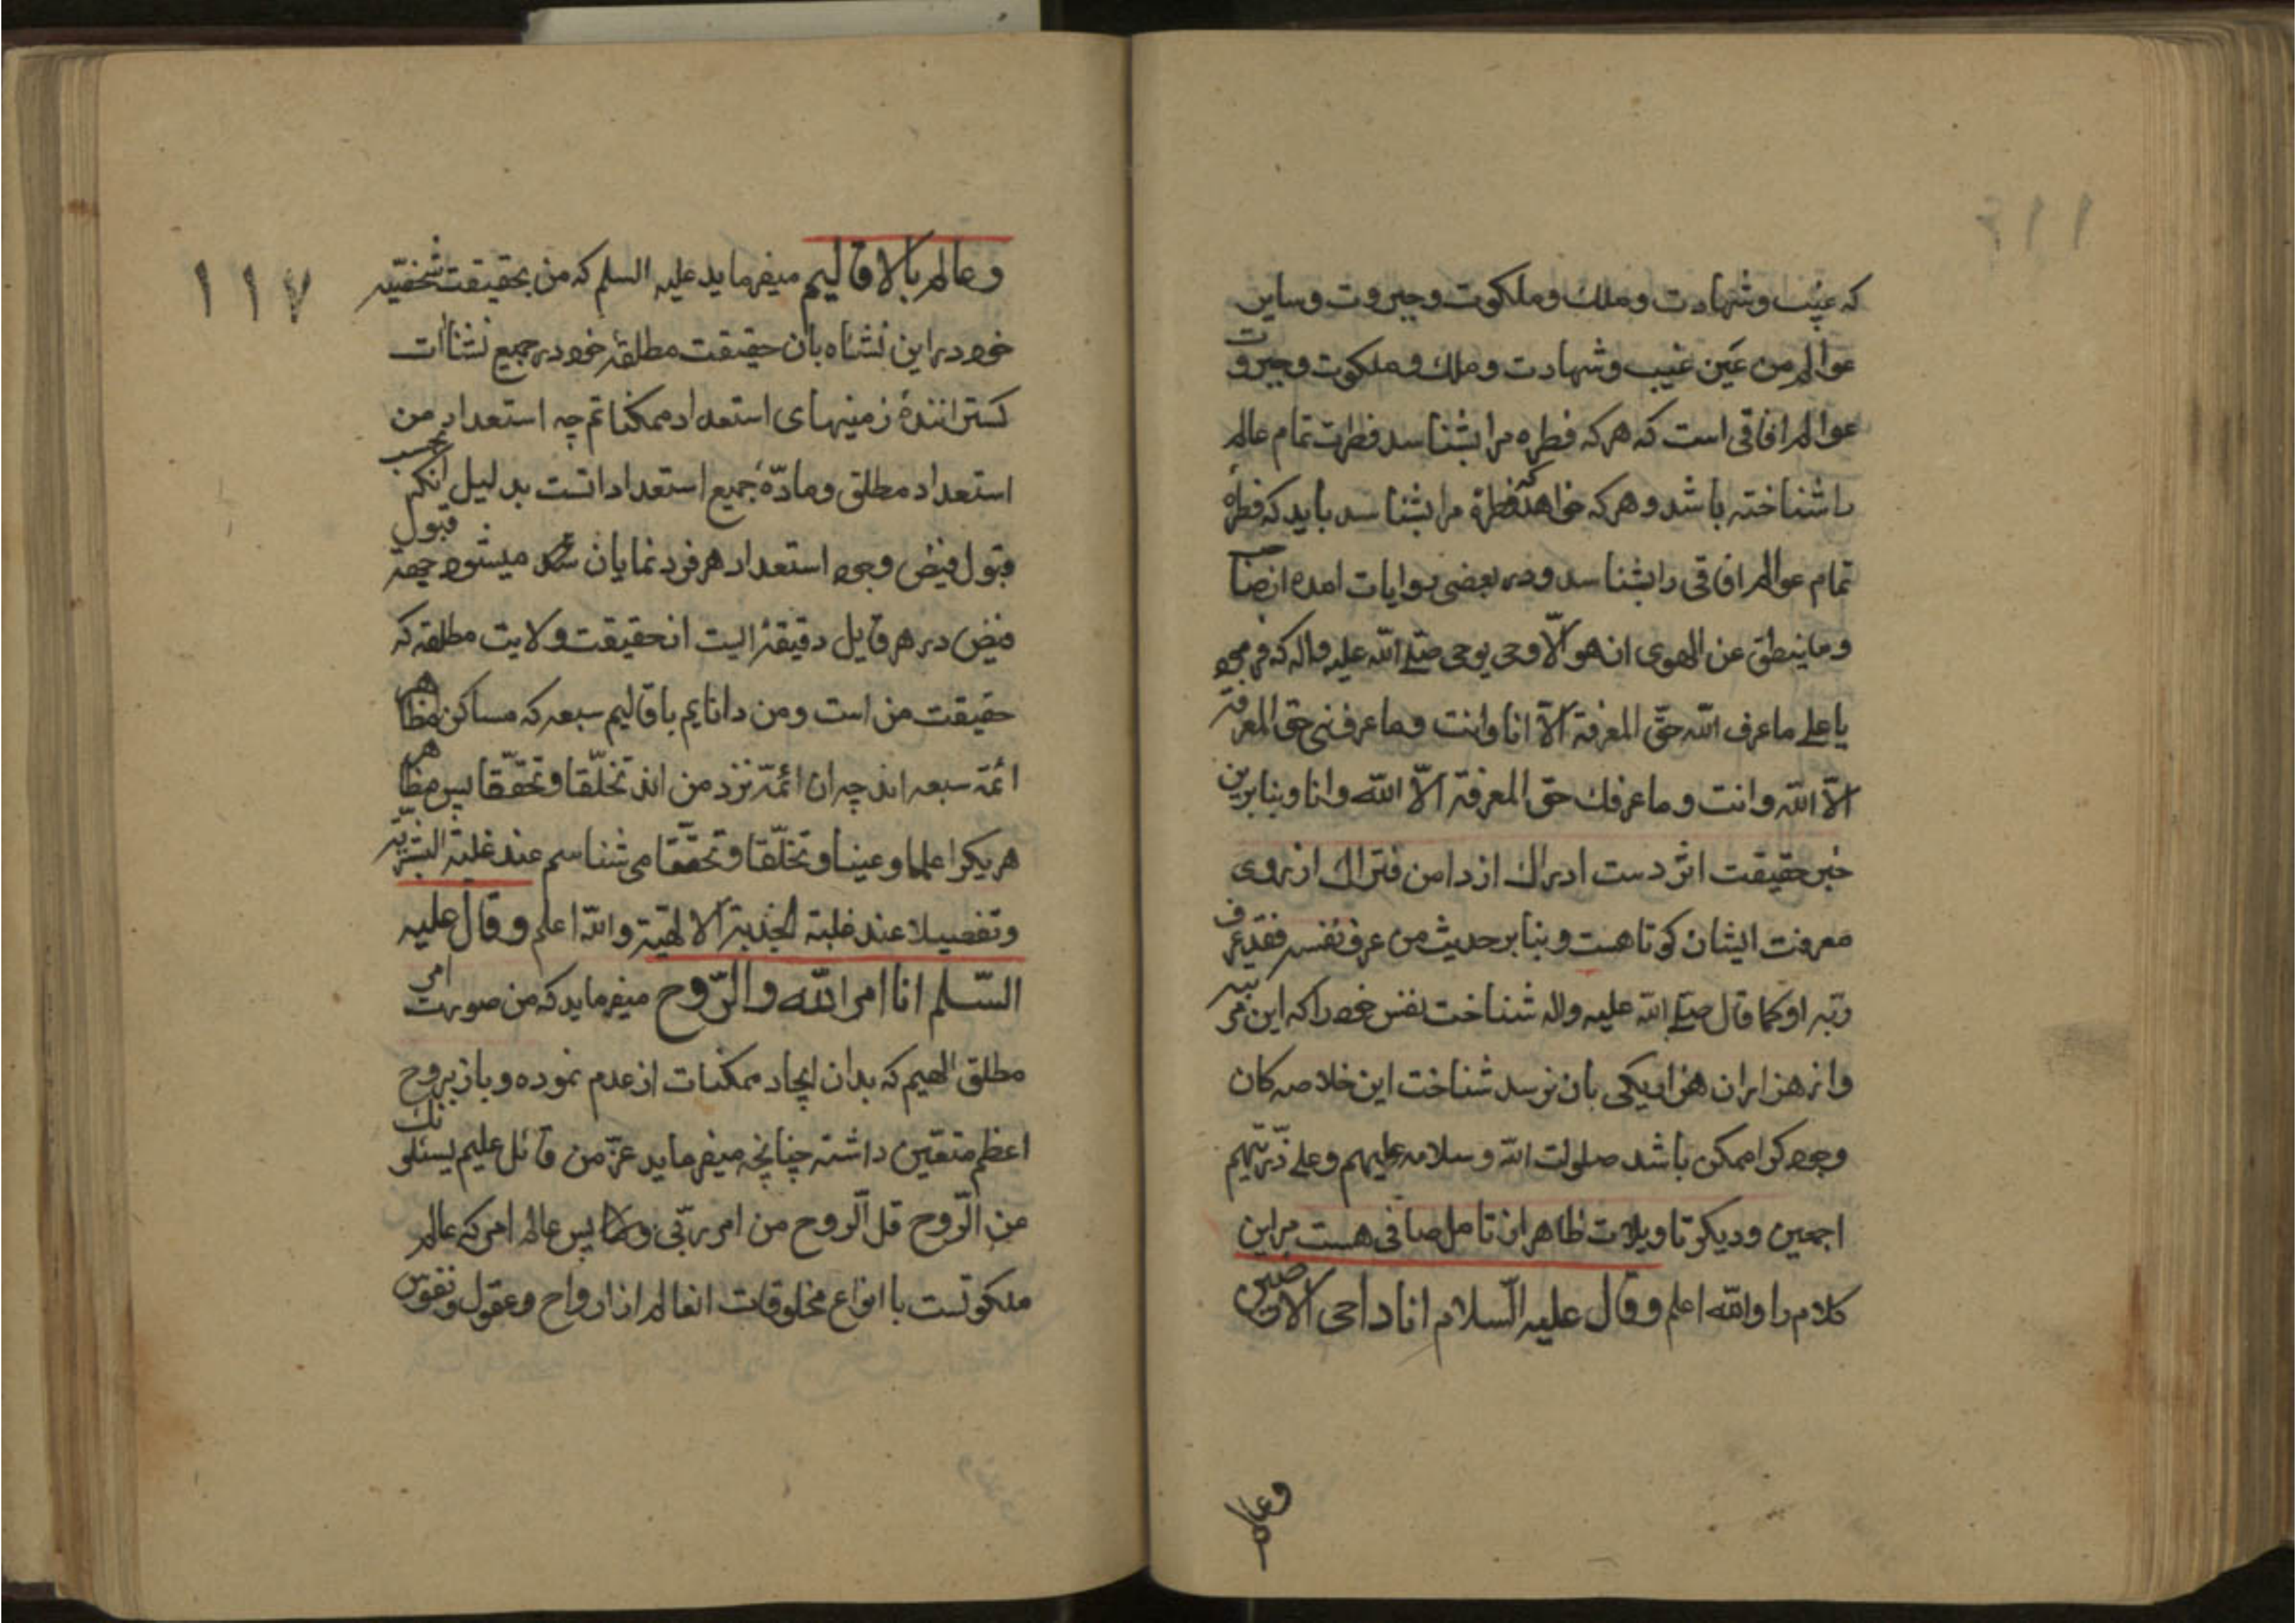 که غیب و شهادت و ملک و ملکوت و جبروت و سایر
عوالم من عین غیب و شهادت و ملک و ملکوت و جبروت
عوالم افاقی است که هر که فطره مرا بشناسد فطرت تمام عالم
را شناخته باشد و هر که خواهد که فطرة مرا بشناسد باید که فطرة
تمام عوالم افاقی را بشناسد و در بعضی روایات امده از صاحب
و ما ینطق عن الهوی ان هو الّا وحی یوحی صلی الله علیه واله که فرمود
یا علی ما عرف الله حقّ المعرفة الّا انا وانت و ما عرفنی حق المعرفة
الّا الله وانت و ما عرفك حق المعرفة الّا الله وانا و بنا برین
خبر حقیقت اثر دست ادراك از دامن فتراك از روی
معرفت ایشان کوتاهست و بنا بر حدیث من عرف نفسه فقد عرف
ربّه او کما قال صلی الله علیه واله شناخت نفس خود را که این مرتبه
و از هزاران هزار یکی بان نرسد شناخت این خلاصه کان
وجود کرا ممکن باشد صلوات الله وسلامه علیهم وعلی ذرّیّتهم
اجمعین و دیکر تاویلات ظاهر از تامل صافی هست مر این
کلام را والله اعلم وقال علیه السّلام انا داحی الارضین
وعالم
۱۱۷
وعالم بالاقالیم میفرماید علیه السلم که من بحقیقت شخصّیه
خود در این نشاه بان حقیقت مطلقهٔ خود در جمیع نشاات
کسترانندهٔ زمینهای استعداد ممکناتم چه استعداد من
استعداد مطلق و مادّهٔ جمیع استعداداتست بدلیل انکه بحسب
قبول فیض وجود استعداد هر فرد نمایان میشود چه قبول
فیض در هر قابل دقیقهٔ الیت از حقیقت ولایت مطلقه که
حقیقت من است و من دانایم باقالیم سبعه که مساکن مظاهر
ائمّه سبعه اند چه ان ائمّه نزد من اند تخلّقا و تحقّقا پس مظاهر
هریکرا علما و عینا و تخلّقا و تحقّقا می شناسم عند غلبة البشریّه
وتفصیلا عند غلبة الجذبة الالهیّة والله اعلم وقال علیه
السّلم انا امر الله والرّوح میفرماید که من صورت امر
مطلق الهیم که بدان ایجاد ممکنات از عدم نموده و باز بروح
اعظم متعیّن داشته چنانچه میفرماید عزّ من قائل علیم یسئلونك
عن الرّوح قل الرّوح من امر ربّی پس عالم امر که عالم
ملکوتست با انواع مخلوقات انعالم از ارواح و عقول و نفوس